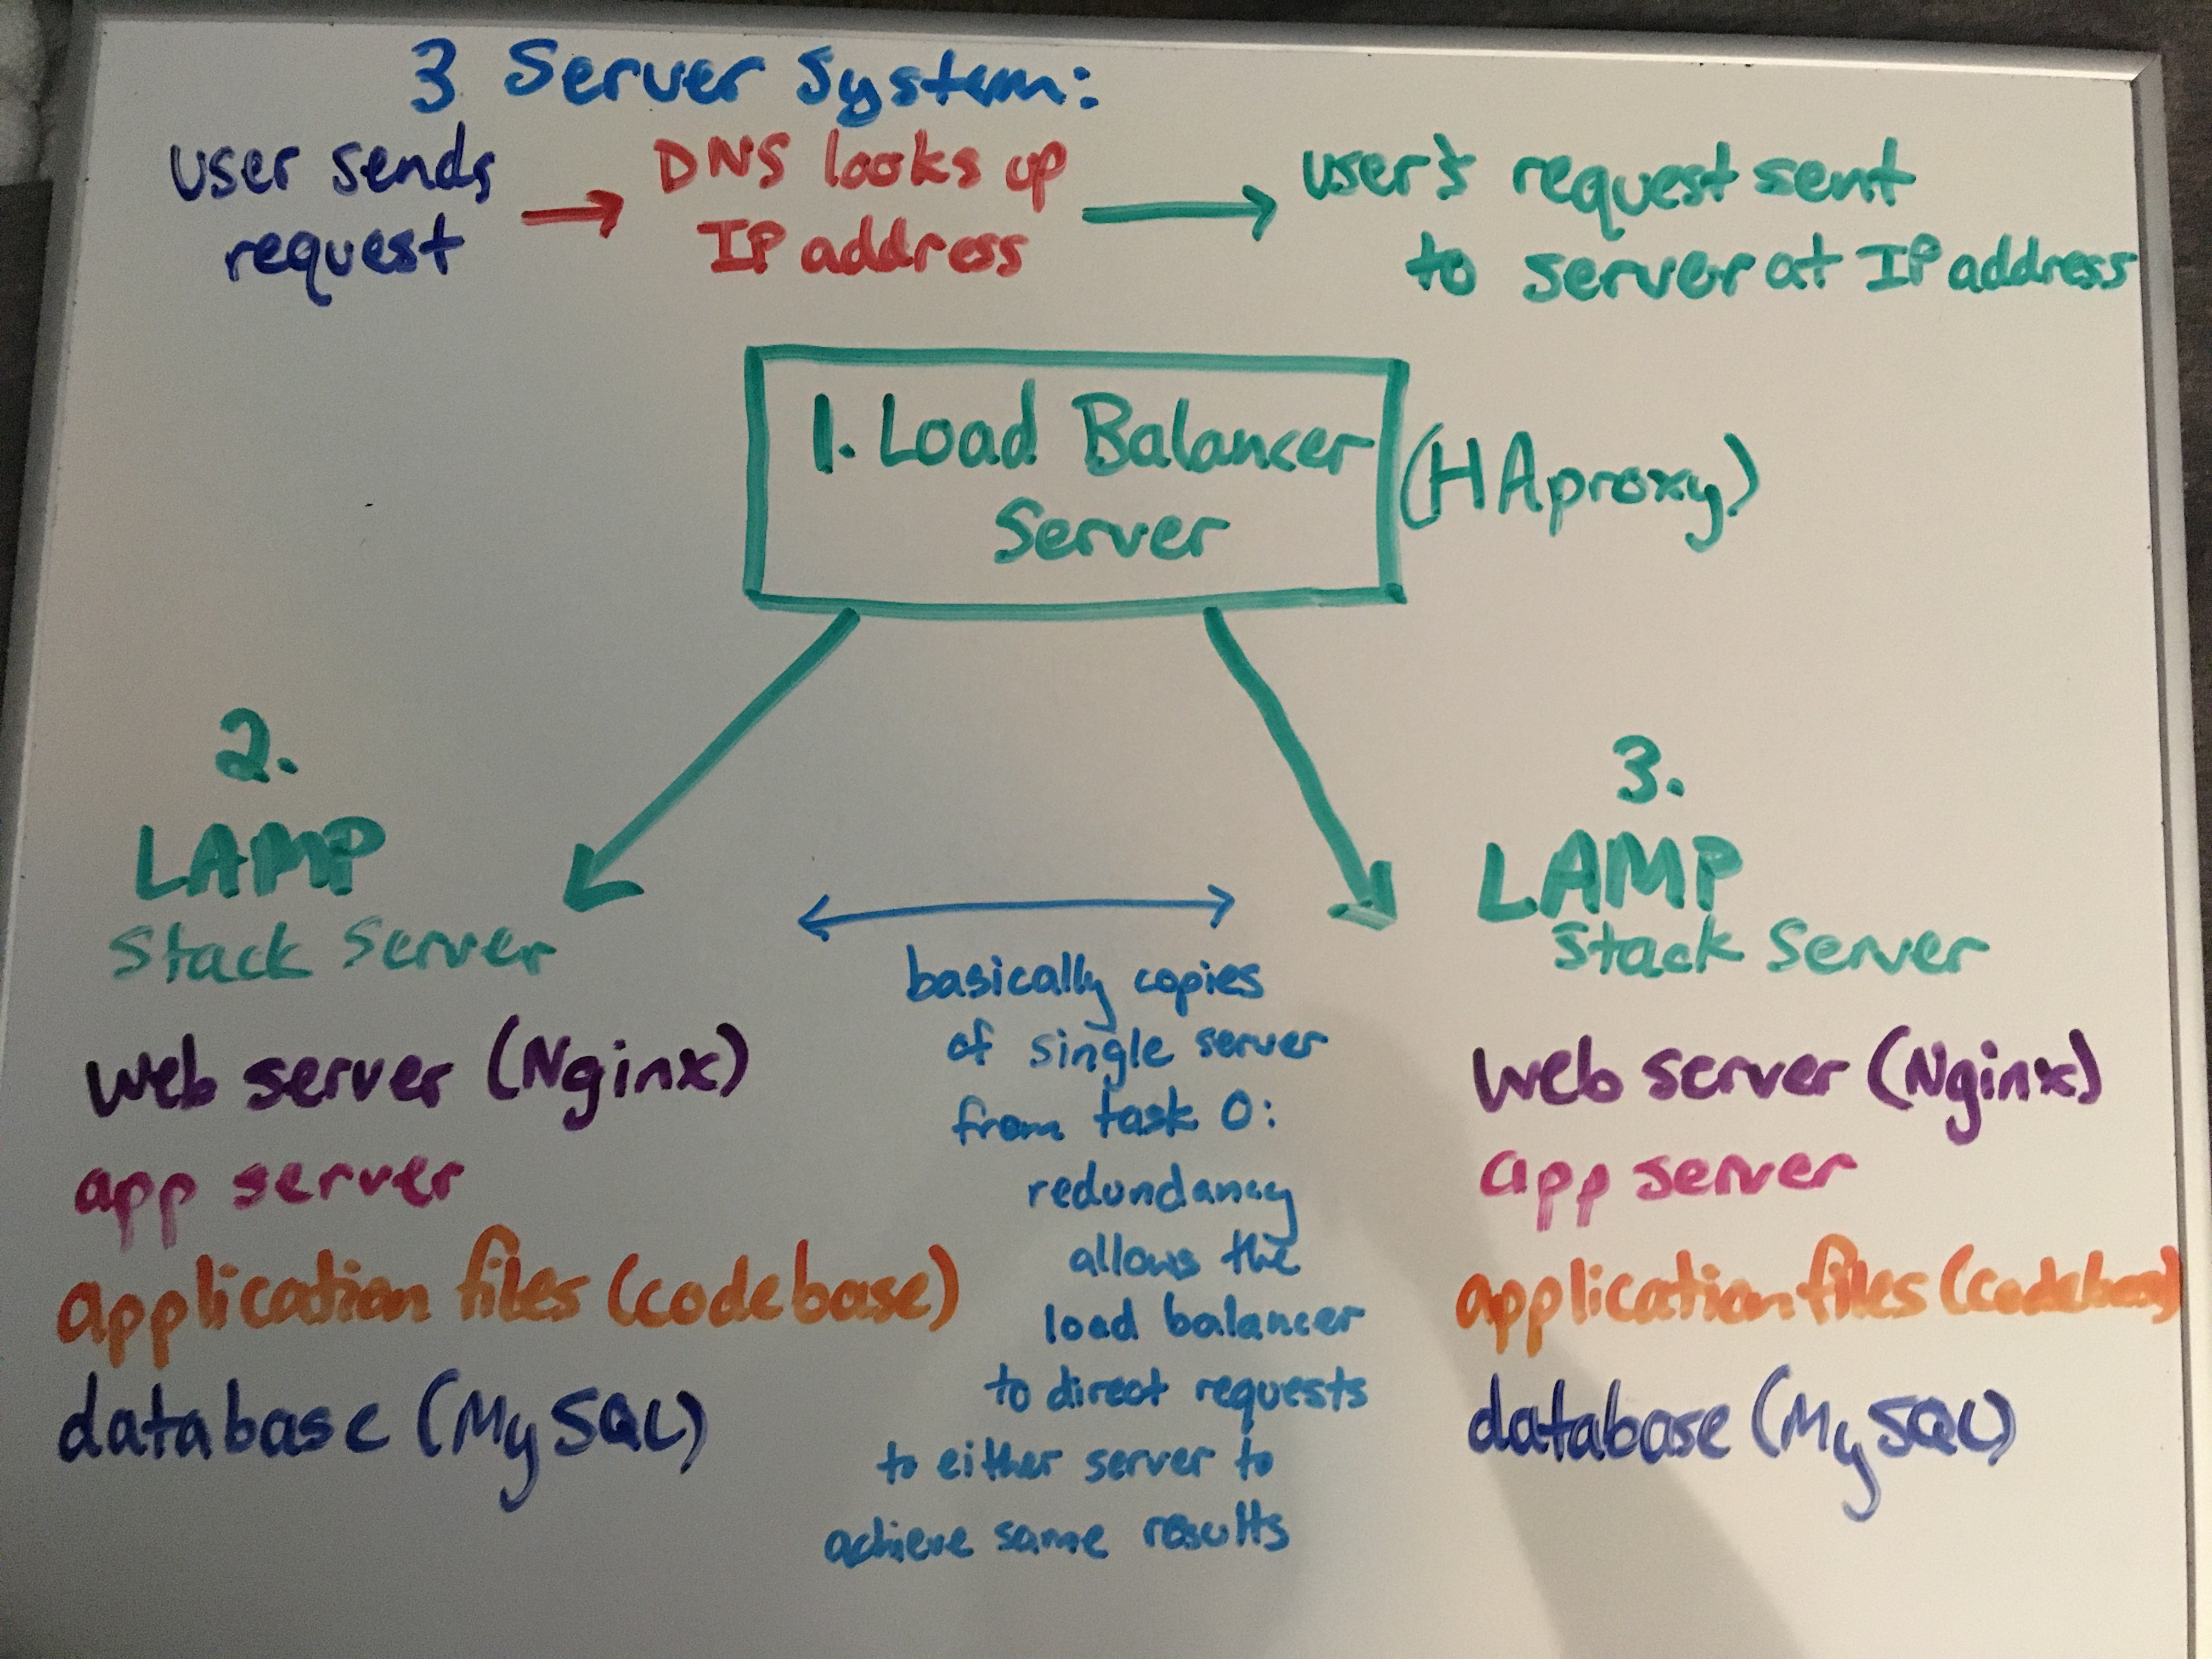 3 Server System:
user sends
request
→ DNS looks up
IP address
→ user's request sent
to server at IP address
1. Load Balancer
Server
(HAproxy)
2.
LAMP
Stack Server
Web server (Nginx)
app server
application files (codebase)
database (MySQL)
basically copies
of single server
from task 0:
redundancy
allows the
load balancer
to direct requests
to either server to
achieve same results
3.
LAMP
Stack Server
Web server (Nginx)
app server
application files (codebase)
database (MySQL)